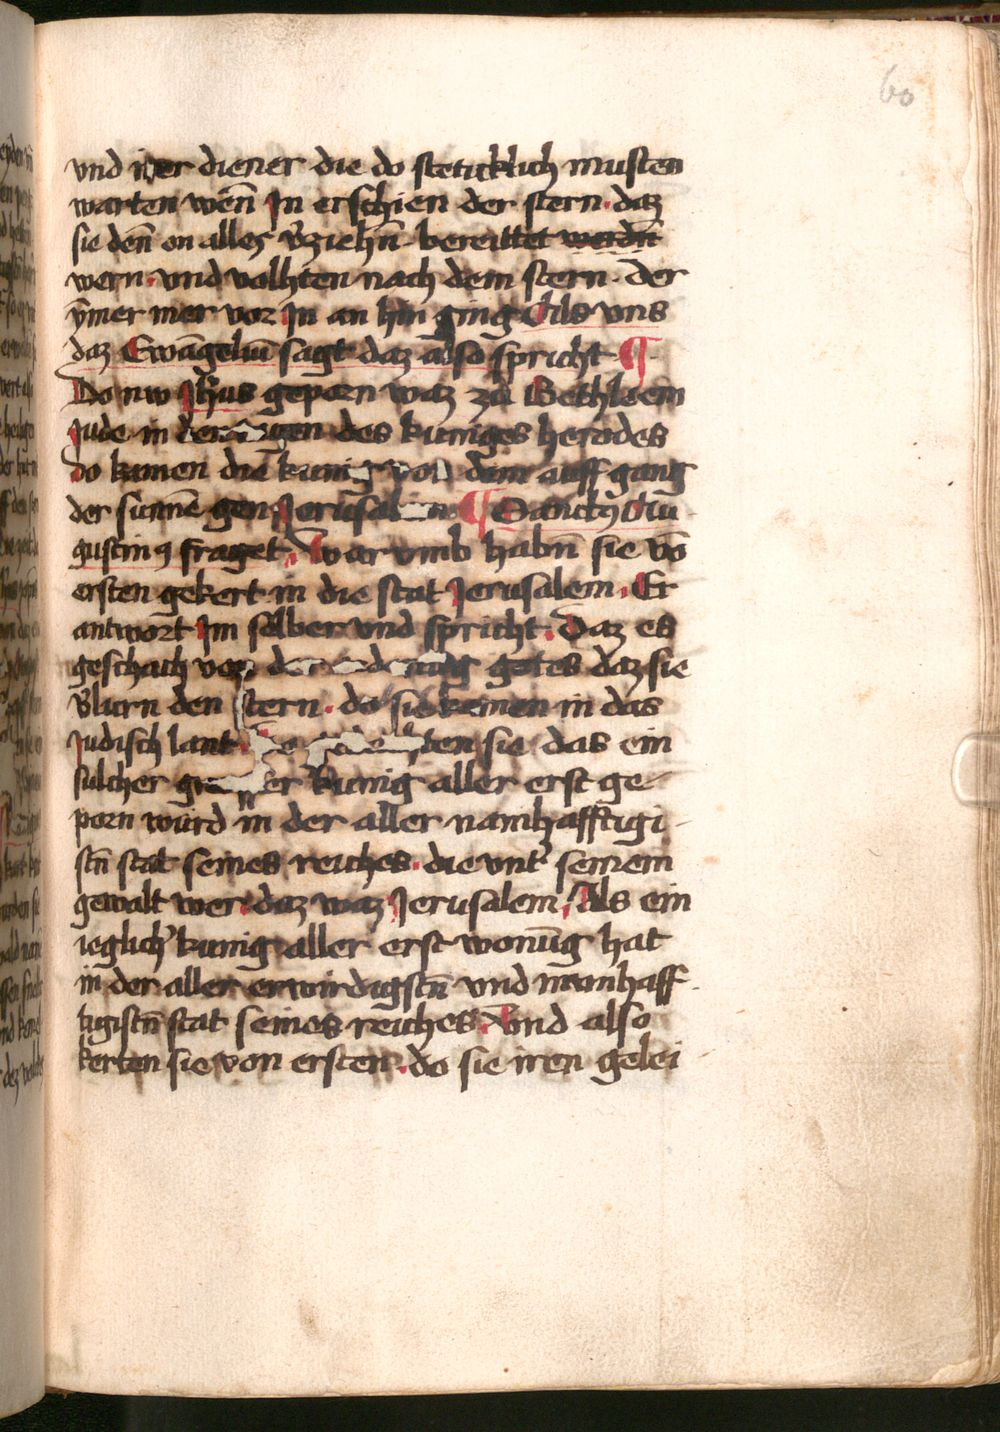 60
vnd irer diener die do steticklich musten
warten wen̄ Jn erschien der stern. daz
sie den̄ on alles v̓ziehn̄ bereittet werdn̄
wern. vnd volhten nach dem stern. der
ÿmer mer vor Jn an hin ging Als vns
daz Ewāgeliū sagt daz also spricht ¶
Do nw Jh̄us geporn waz zu Bethleem
Jude in der des kuniges herodes
do kamen die kunig von dem auff gang
der sunne gen Jerusalem ¶ Sanctꝰ Au
gustinꝰ fraget. War vmb habn̄ sie vō
ersten gekert in die stat Jerusalem. Er
antwort Jm selber vnd spricht. Daz es
geschach von der gotes daz sie
v̓lurn den stern. do sie kamen in das
Judisch lant ten sie das ein
sulcher kunig aller erst ge
porn würd in der aller namhafftigi
stn̄ stat seines reiches. die vnt̓ seinem
gewalt wer. daz waz Jerusalem. Als ein
ieglich̓ kunig aller erst wonūg hat
in der aller erwirdigstn̄ vnd manhaff
tigistn̄ stat seines reiches. Vnd also
kerten sie von ersten. do sie iren gelei